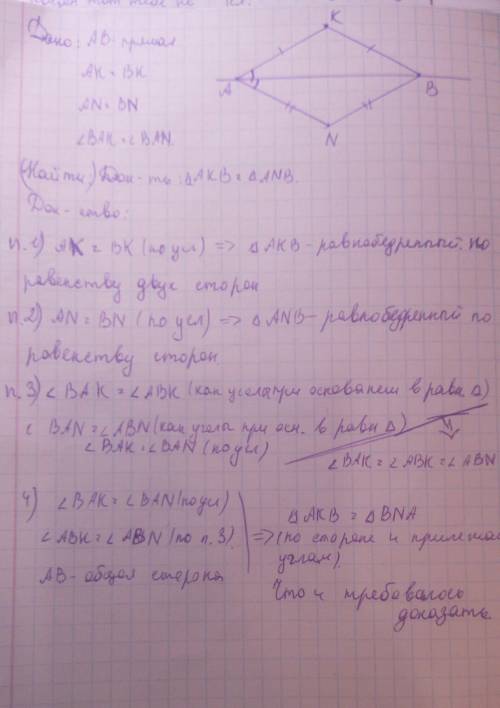 Дано: AB-прямая
AK = BK
AN = BN
∠BAK = ∠BAN.
K
A
B
N
(Найти) Док-ть: △AKB = △ANB.
Док-ство:
п.1) AK = BK (по усл) => △AKB - равнобедренный. по
равенству двух сторон
п.2) AN = BN (по усл) => △ANB - равнобедренный по
равенству сторон.
п.3) ∠BAK = ∠ABK (как углы при основании в равн △)
∠BAN = ∠ABN (как углы при осн. в равн △)
∠BAK = ∠BAN (по усл)
∠BAK = ∠ABK = ∠ABN
4) ∠BAK = ∠BAN (по усл)
∠ABK = ∠ABN (по п.3)
AB - общая сторона
=>
△AKB = △BNA
(по стороне и прилежащ
углам).
Что и требовалось
доказать.